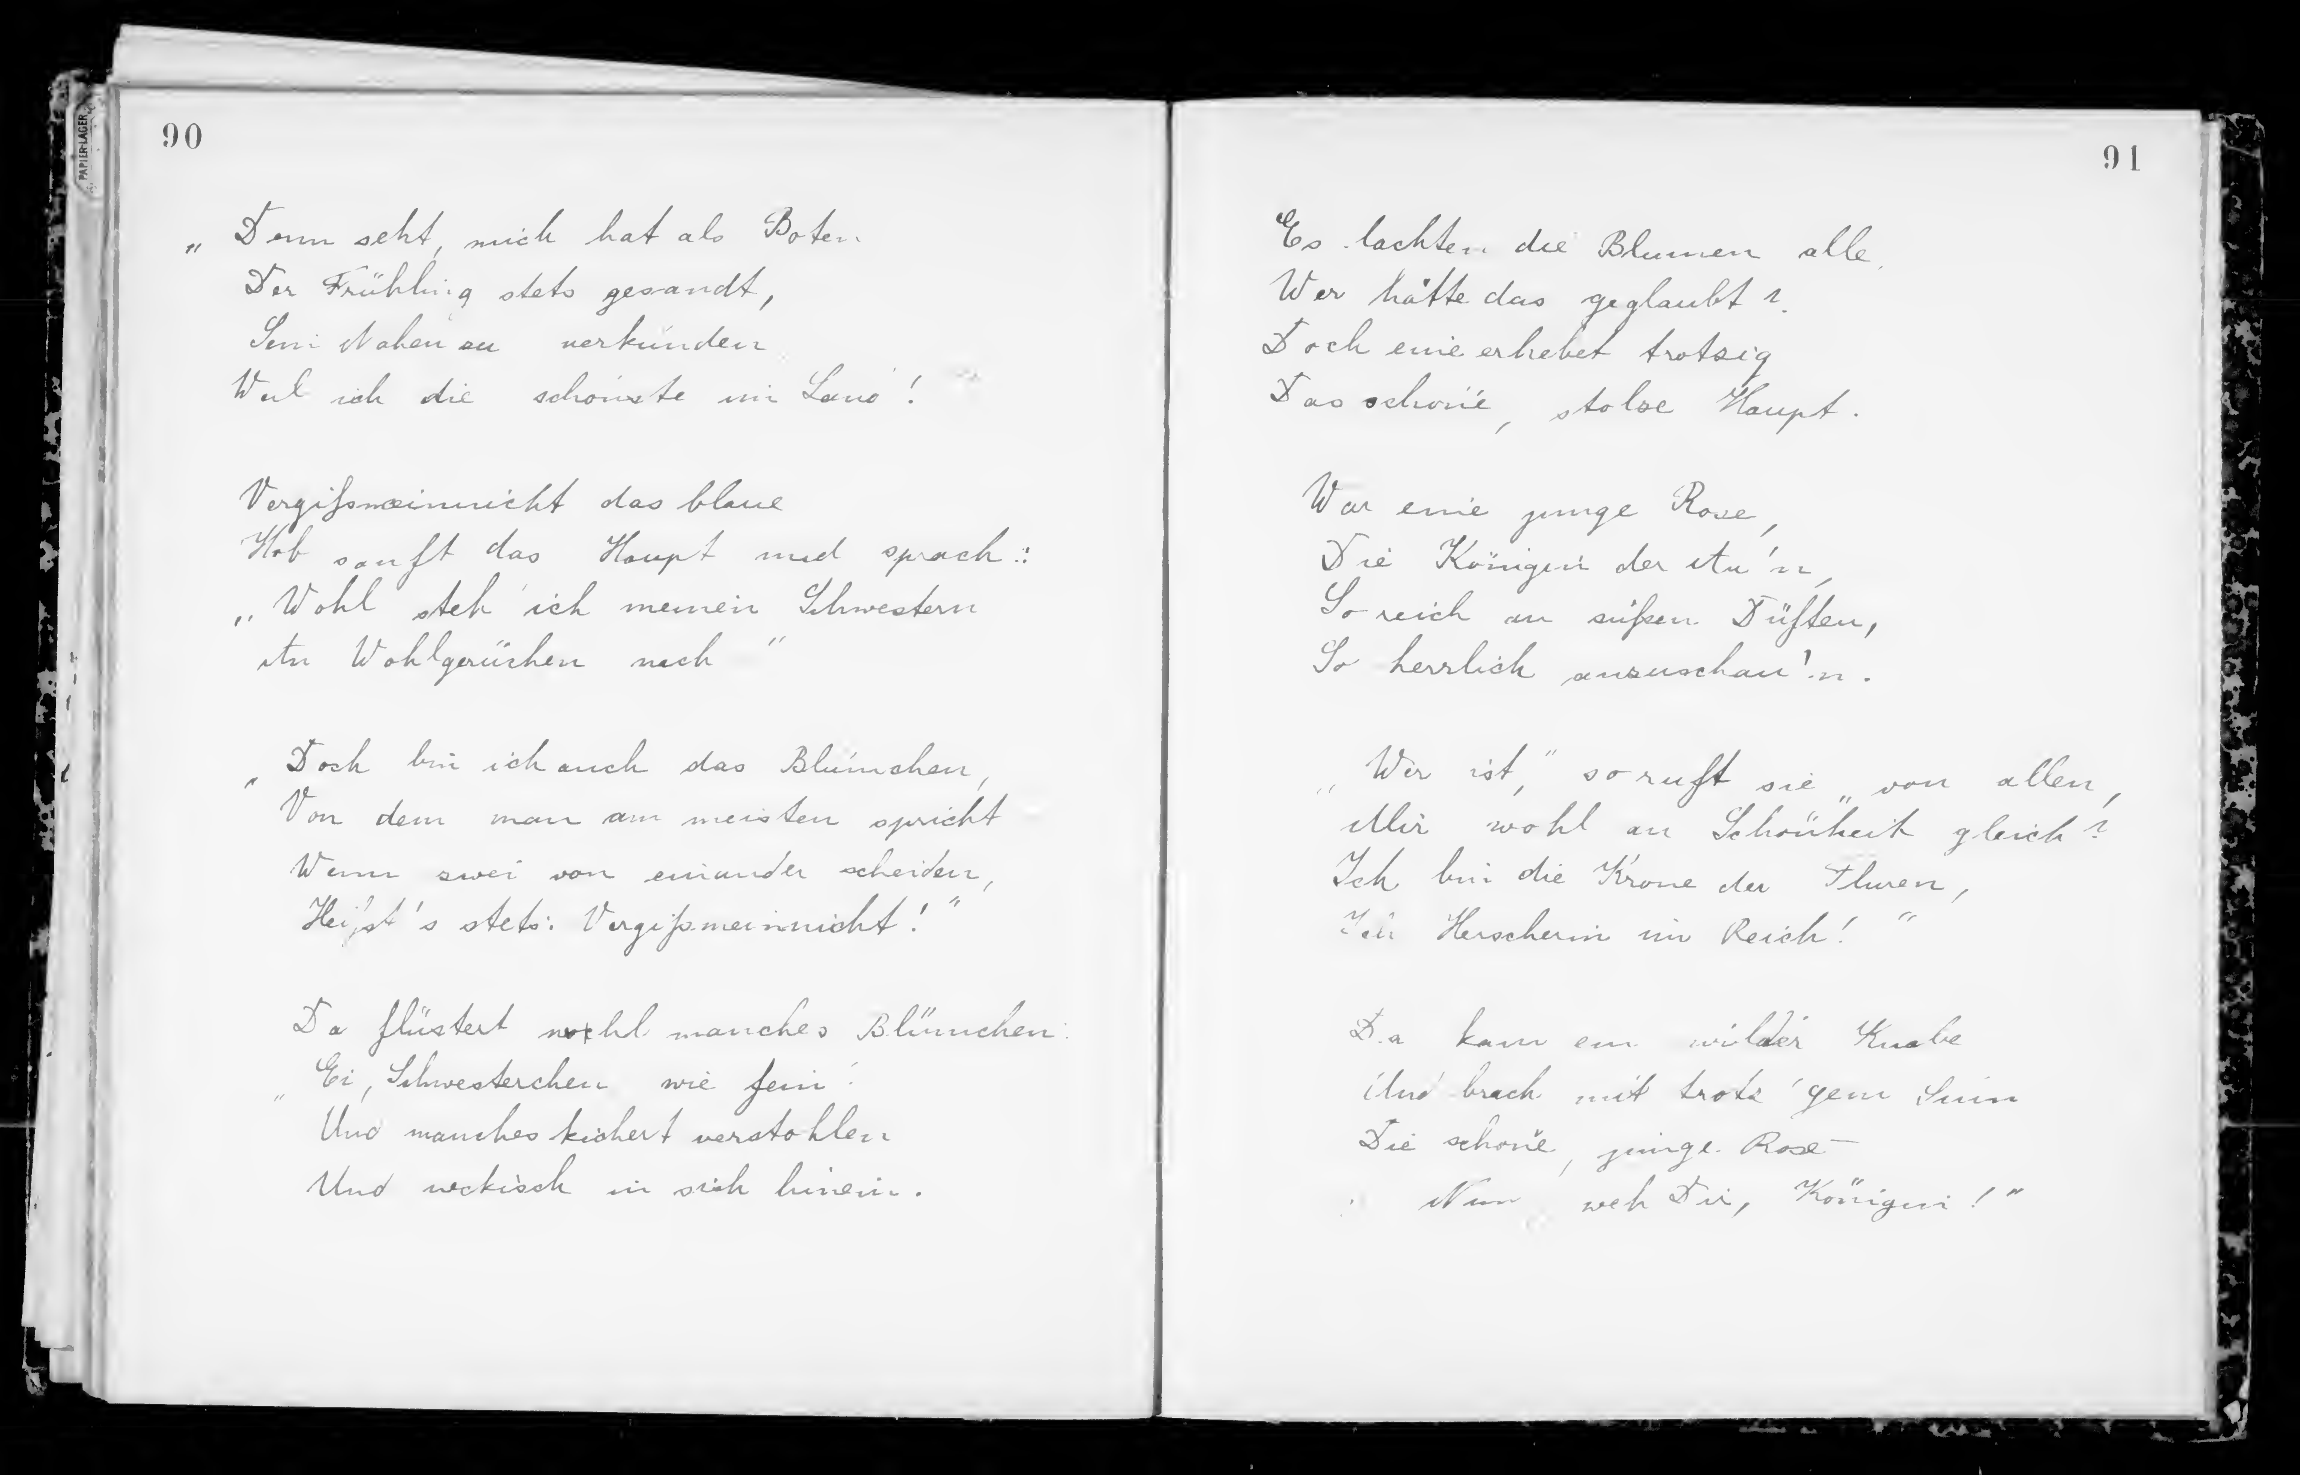 PAPIER-LAGER
90
„Denn seht, mich hat als Boten
Der Frühling stets gesandt,
Sein Nahen zu verkünden
Weil ich die schönste im Land!
Vergißmeinnicht das blaue
Hob sanft das Haupt und sprach:
„Wohl steh' ich meinen Schwestern
An Wohlgerüchen nach"
„Doch bin ich auch das Blümchen,
Von dem man am meisten spricht
Wenn zwei von einander scheiden,
Heißt's stets: Vergißmeinnicht!"
Da flüstert wohl manches Blümchen:
„Ei, Schwesterchen wie fein!
Und manches kichert verstohlen
Und neckisch in sich hinein.
91
Es lachten die Blumen alle,
Wer hätte das geglaubt?
Doch eine erhebet trotzig
Das schöne, stolze Haupt.
War eine junge Rose,
Die Königin der Au'n,
So reich an süßen Düften,
So herrlich anzuschau'n.
„Wer ist," so ruft sie „von allen,
Mir wohl an Schönheit gleich?
Ich bin die Krone der Fluren,
Ich Herscherin im Reich!"
Da kam ein wilder Knabe
Und brach mit trotz'gem Sinn
Die schöne, junge Rose—
Nun weh Dir, Königin!"